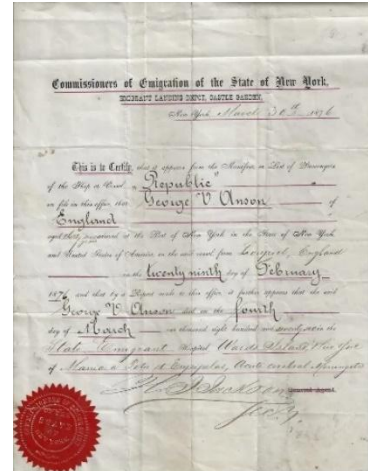 Commissioners of Emigration of the State of New York,
EMIGRANT LANDING DEPOT, CASTLE GARDEN,
New York March 30th 1876
This is to Certify, that it appears from the Manifest, or List of Passengers
of the Ship or Vessel "Republic"
on file in this office, that George V Anson of
England
aged arrived at the Port of New York in the State of New York
and United States of America in the said vessel from Liverpool, England
on the twenty ninth day of February
1876 and that by a Report made to this office, it further appears that the said
George V. Anson died on the fourth
day of March one thousand eight hundred and seventy six in the
State Emigrant Hospital Wards Island New York
of Mania a Potu & Erysipelas, Acute cerebral Meningitis
H J Jackson
Secy.